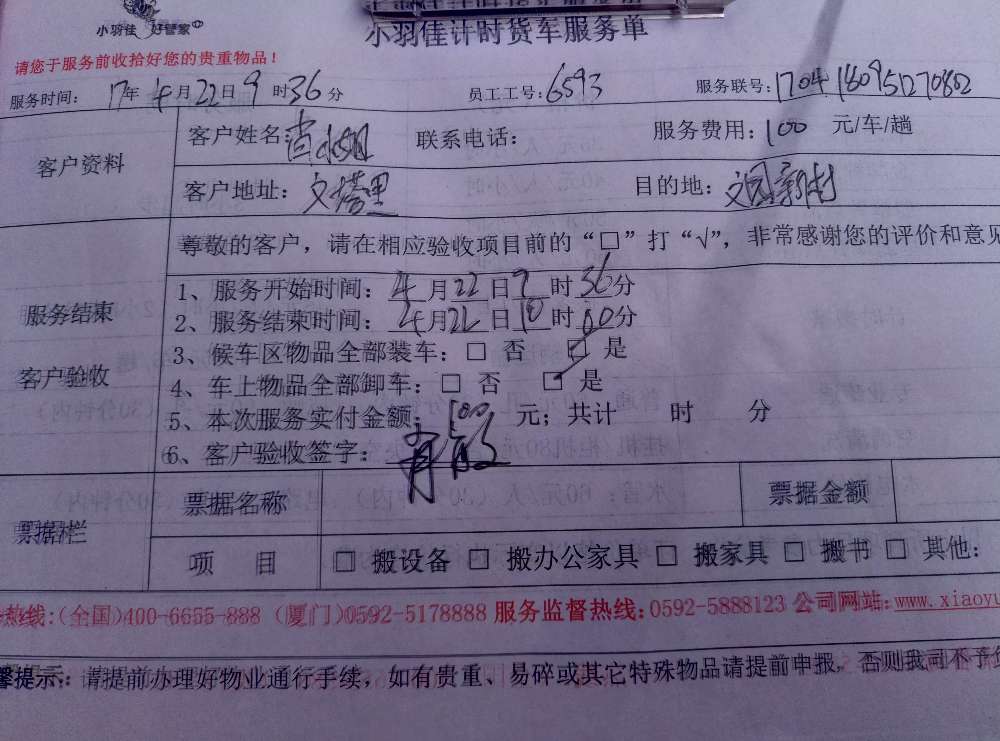 小羽佳 好管家
小羽佳计时货车服务单
请您于服务前收拾好您的贵重物品！
服务时间： 17年 4月 22日 9时 36分 员工工号：6593 服务联号：1704 180951270802
客户资料
客户姓名： 联系电话： 服务费用：100 元/车/趟
客户地址：文塔里 目的地：文园新村
尊敬的客户，请在相应验收项目前的“□”打“√”，非常感谢您的评价和意见
服务结束
客户验收
1、服务开始时间：4月22日9时36分
2、服务结束时间：4月22日10时00分
3、候车区物品全部装车：□ 否 □ 是
4、车上物品全部卸车：□ 否 □ 是
5、本次服务实付金额：100元；共计 时 分
6、客户验收签字：
票据栏
票据名称 票据金额
项 目 □ 搬设备 □ 搬办公家具 □ 搬家具 □ 搬书 □ 其他：
热线：(全国)400-6655-888 (厦门)0592-5178888 服务监督热线：0592-5888123 公司网站：www.xiaoyu
馨提示：请提前办理好物业通行手续，如有贵重、易碎或其它特殊物品请提前申报，否则我司不予